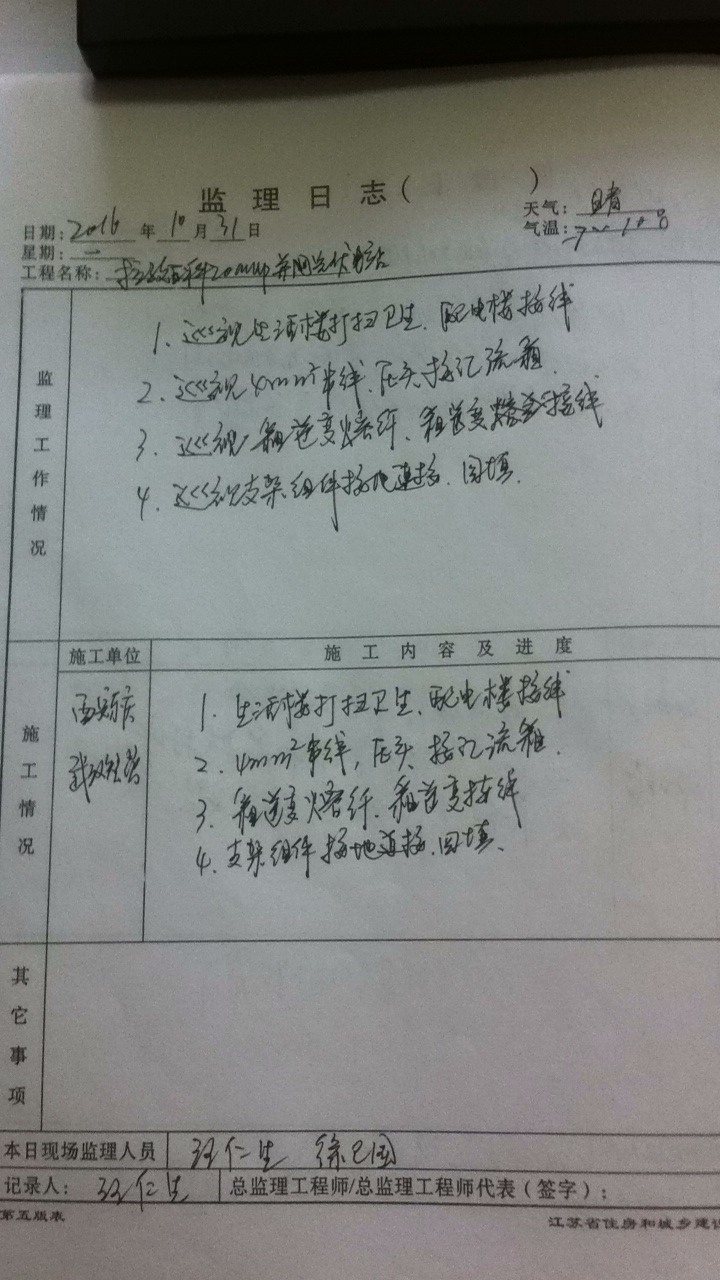 监理日志（ ）
日期：2016年10月31日
天气：晴
星期：一
气温：7~10
工程名称：20MWp并网光伏电站
监理工作情况
1、巡视生活楼打扫卫生、配电楼接线
2、巡视4mm²串线、压头、接汇流箱
3、巡视箱逆变熔纤、箱逆变接线
4、巡视支架组件接地连接、回填。
施工情况
施工单位
施工内容及进度
1、生活楼打扫卫生、配电楼接线
2、4mm²串线，压头、接汇流箱．
3、箱逆变熔纤、箱逆变接线
4、支架组件接地连接、回填、
其它事项
本日现场监理人员
仁生
记录人：仁生
总监理工程师/总监理工程师代表（签字）：
第五版表
江苏省住房和城乡建设